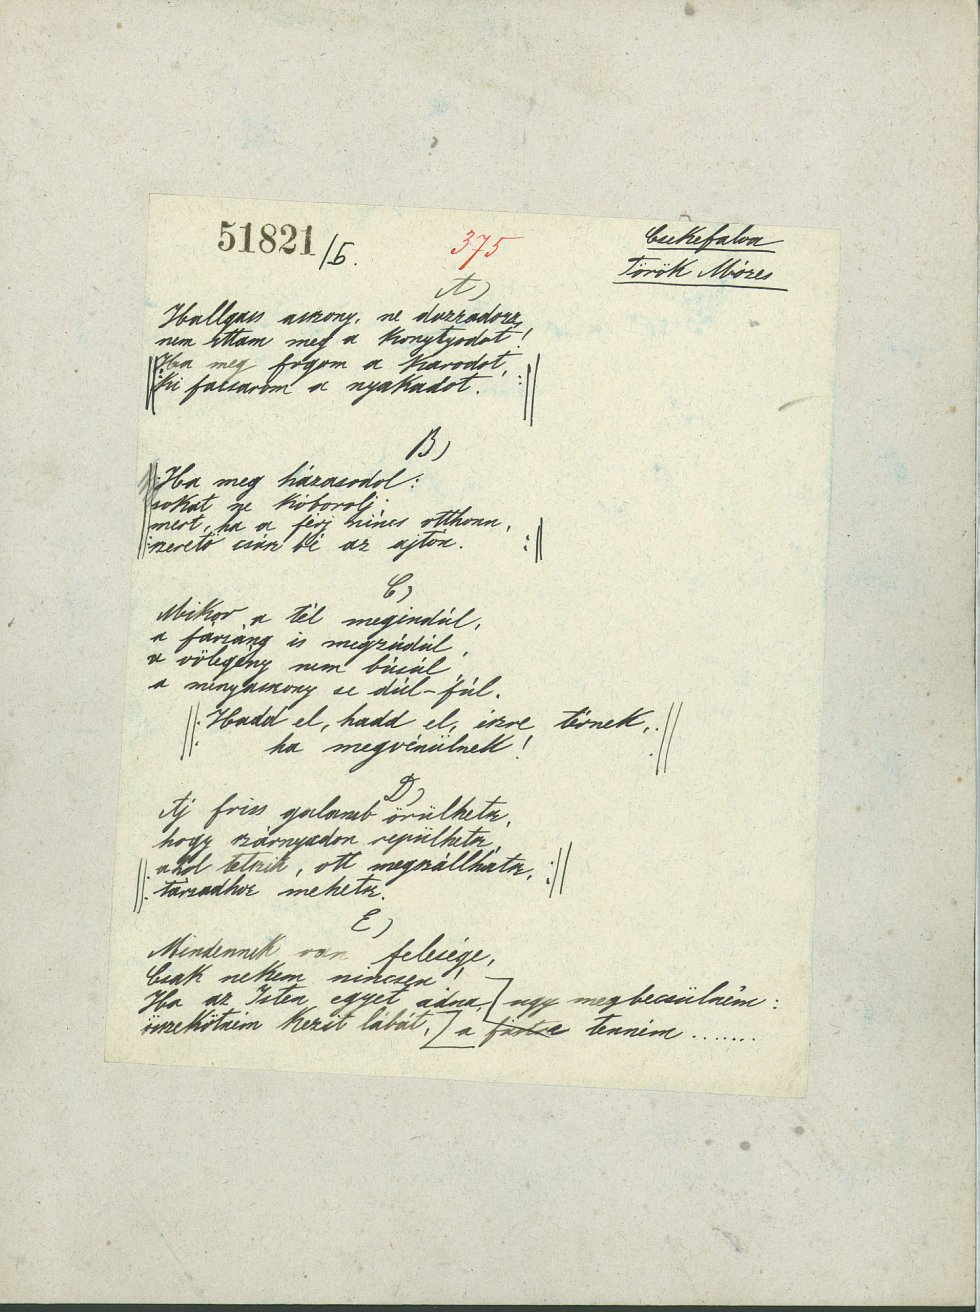 51821/b.
375
Csekefalva
Török Mózes
A)
Hallgass asszony, ne duzzadozz,
nem ittam meg a kontyodot!
||: Ha meg fogom a karodot,
ki facsarom a nyakadot. :||
B)
||: Ha meg házasodol:
sokat ne kóborolj,
mert, ha a férj nincs otthonn,
szerető csúsz bé az ajton. :||
C)
Mikor a tél megindúl,
a fársáng is megzúdúl,
a völegény nem búsúl,
a menyasszony se dúl-fúl.
||: Hadd el, hadd el, észre térnek,
ha megvénülnek! :||
D)
Áj friss galamb örülhetsz,
hogy szárnyadon repülhetsz,
||: ahol tetszik, ott megszállhatsz, :||
társadhoz mehetsz.
E)
Mindennek van felesége,
Csak nekem nincsen!
Ha az Isten egyet adna, ugy megbecsülném:
összekötném kezit lábát, a tenném .......